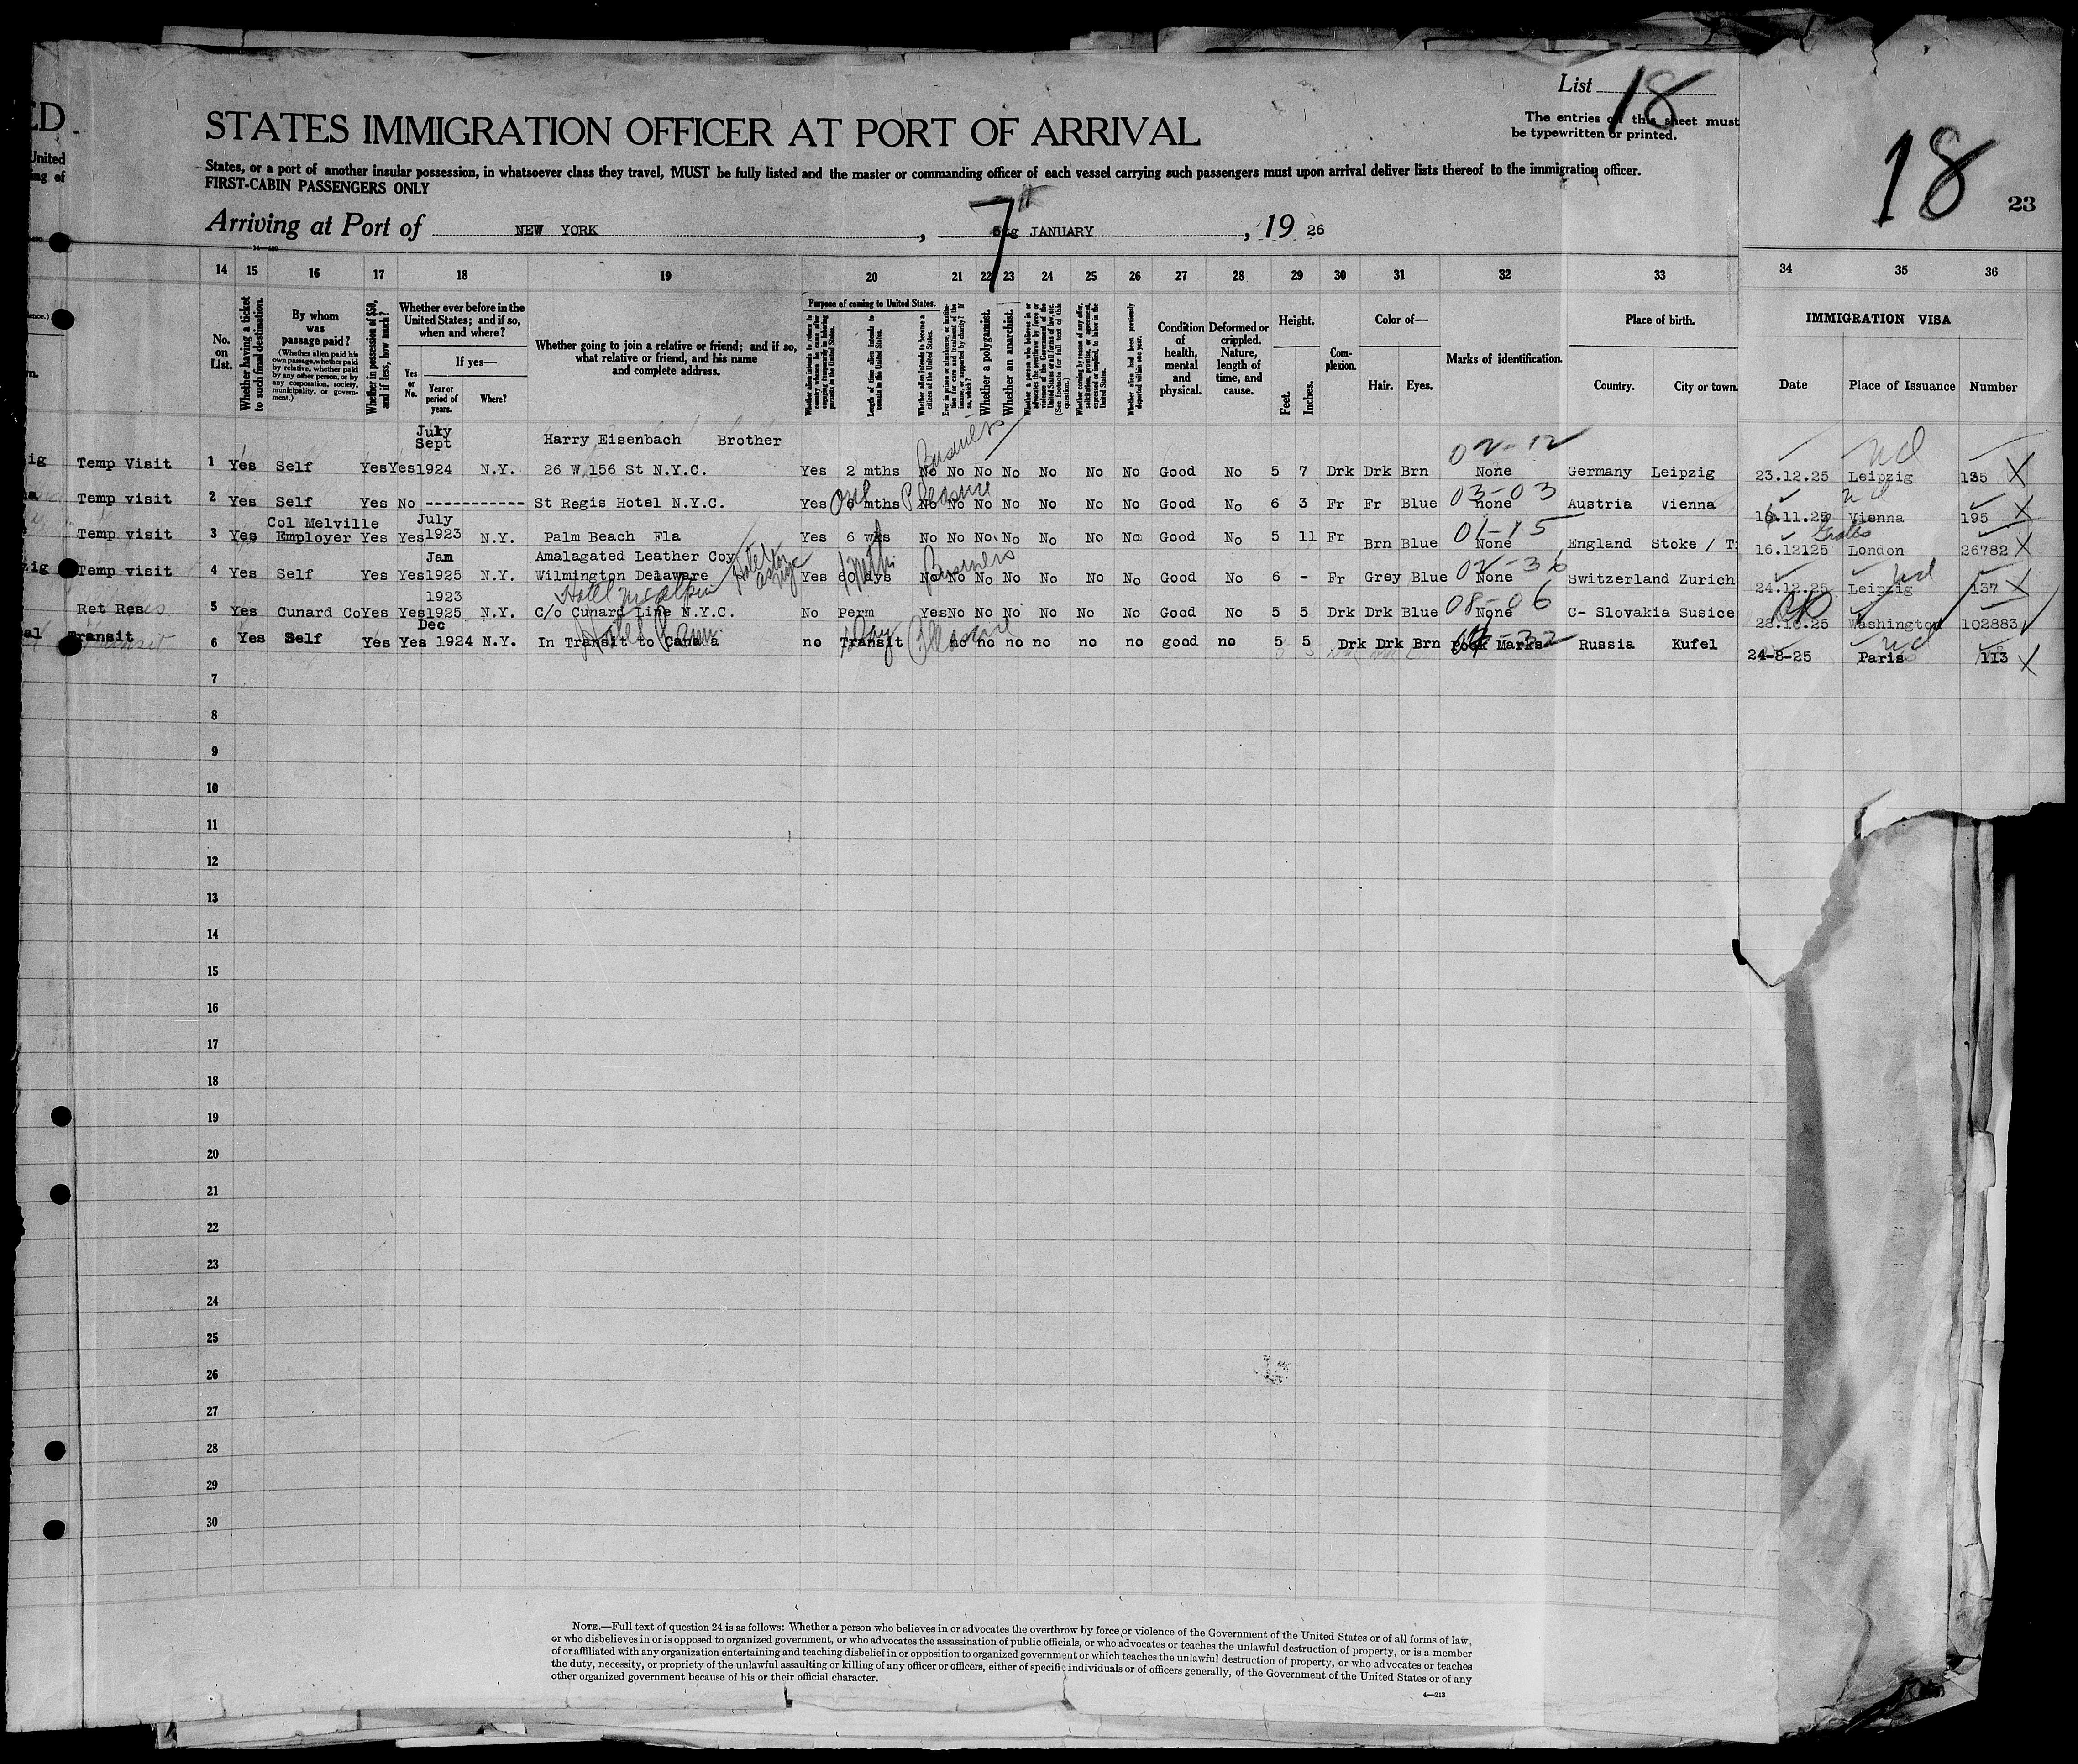 List 18
The entries on this sheet must
be typewritten or printed.
ED
STATES IMMIGRATION OFFICER AT PORT OF ARRIVAL
18
23
United
ing of
States, or a port of another insular possession, in whatsoever class they travel, MUST be fully listed and the master or commanding officer of each vessel carrying such passengers must upon arrival deliver lists thereof to the immigration officer.
FIRST-CABIN PASSENGERS ONLY
Arriving at Port of NEW YORK, 7th JANUARY, 19 26
14 15 16 17 18 19 20 21 22 23 24 25 26 27 28 29 30 31 32 33 34 35 36
No. on List.
Whether having a ticket to such final destination.
By whom was passage paid?
(Whether alien paid his own passage, whether paid by relative, whether paid by any other person, or by any corporation, society, municipality, or government.)
Whether in possession of $50, and if less, how much?
Whether ever before in the United States; and if so, when and where?
Yes or No.
If yes—
Year or period of years.
Where?
Whether going to join a relative or friend; and if so, what relative or friend, and his name and complete address.
Purpose of coming to United States.
Whether alien intends to return to country whence he came after engaging temporarily in laboring pursuits in the United States.
Length of time alien intends to remain in the United States.
Whether alien intends to become a citizen of the United States.
Ever in prison or almshouse, or institution for care and treatment of the insane, or supported by charity? If so, which?
Whether a polygamist.
Whether an anarchist.
Whether a person who believes in or advocates the overthrow by force or violence of the Government of the United States or all forms of law, etc. (See footnote for full text of this question.)
Whether coming by reason of any offer, solicitation, promise, or agreement, expressed or implied, to labor in the United States.
Whether alien had been previously deported within one year.
Condition of health, mental and physical.
Deformed or crippled. Nature, length of time, and cause.
Height.
Feet. Inches.
Complexion.
Color of—
Hair. Eyes.
Marks of identification.
Place of birth.
Country. City or town.
IMMIGRATION VISA
Date Place of Issuance Number
July
Sept Harry Eisenbach Brother Business 02-12
Temp Visit 1 Yes Self Yes Yes 1924 N.Y. 26 W 156 St N.Y.C. Yes 2 mths No No No No No No No Good No 5 7 Drk Drk Brn None Germany Leipzig 23.12.25 Leipzig 135 X
Temp visit 2 Yes Self Yes No ----------- St Regis Hotel N.Y.C. Yes mths Pleasure No No No No No No No Good No 6 3 Fr Fr Blue 03-03 none Austria Vienna 11.25 Vienna 195 X
Col Melville July 01-15
Temp visit 3 Yes Employer Yes Yes 1923 N.Y. Palm Beach Fla Yes 6 wks No No No No No No No Good No 5 11 Fr Brn Blue None England Stoke / T 16.12125 London 26782 X
Jan Amalagated Leather Coy Business 02-36
Temp visit 4 Yes Self Yes Yes 1925 N.Y. Wilmington Delaware Yes 60 days No No No No No No No Good No 6 - Fr Grey Blue None Switzerland Zurich 24.12.25 Leipzig 137 X
1923 Hotel McAlpin 08-06
Ret Res 5 Yes Cunard Co Yes Yes 1925 N.Y. C/o Cunard Line N.Y.C. No Perm Yes No No No No No No Good No 5 5 Drk Drk Blue None C- Slovakia Susice 28.10.25 Washington 102883
Dec
Transit 6 Yes Self Yes Yes 1924 N.Y. In Transit to Canada no Transit no no no no no no good no 5 5 Drk Drk Brn pock Marks Russia Kufel 24-8-25 Paris 113 X
7
8
9
10
11
12
13
14
15
16
17
18
19
20
21
22
23
24
25
26
27
28
29
30
NOTE.—Full text of question 24 is as follows: Whether a person who believes in or advocates the overthrow by force or violence of the Government of the United States or of all forms of law,
or who disbelieves in or is opposed to organized government, or who advocates the assassination of public officials, or who advocates or teaches the unlawful destruction of property, or is a member
of or affiliated with any organization entertaining and teaching disbelief in or opposition to organized government or which teaches the unlawful destruction of property, or who advocates or teaches
the duty, necessity, or propriety of the unlawful assaulting or killing of any officer or officers, either of specific individuals or of officers generally, of the Government of the United States or of any
other organized government because of his or their official character.
4—213